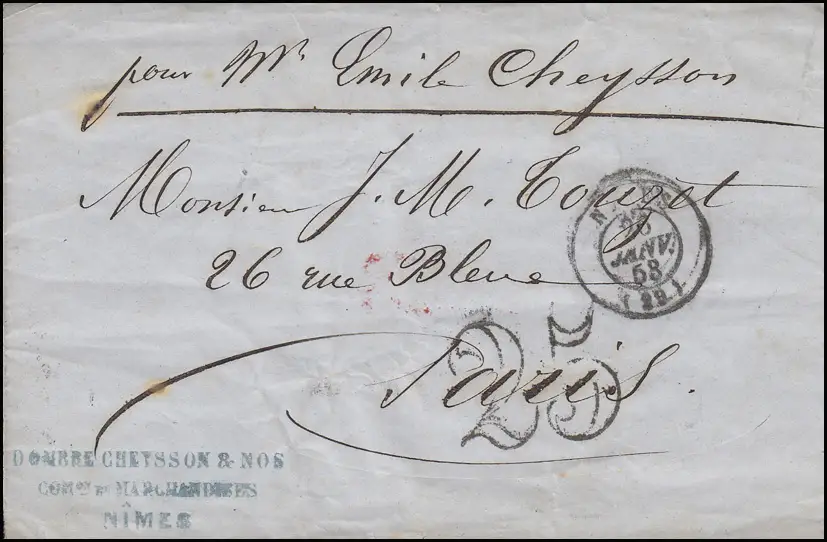 pour Mr. Emile Cheysson
Monsieur J. M. Touzet
26 rue Bleue
Paris.
25
JANV.
58
(29)
DOMBRE CHEYSSON & NOS
COMON DE MARCHANDISES
NÎMES